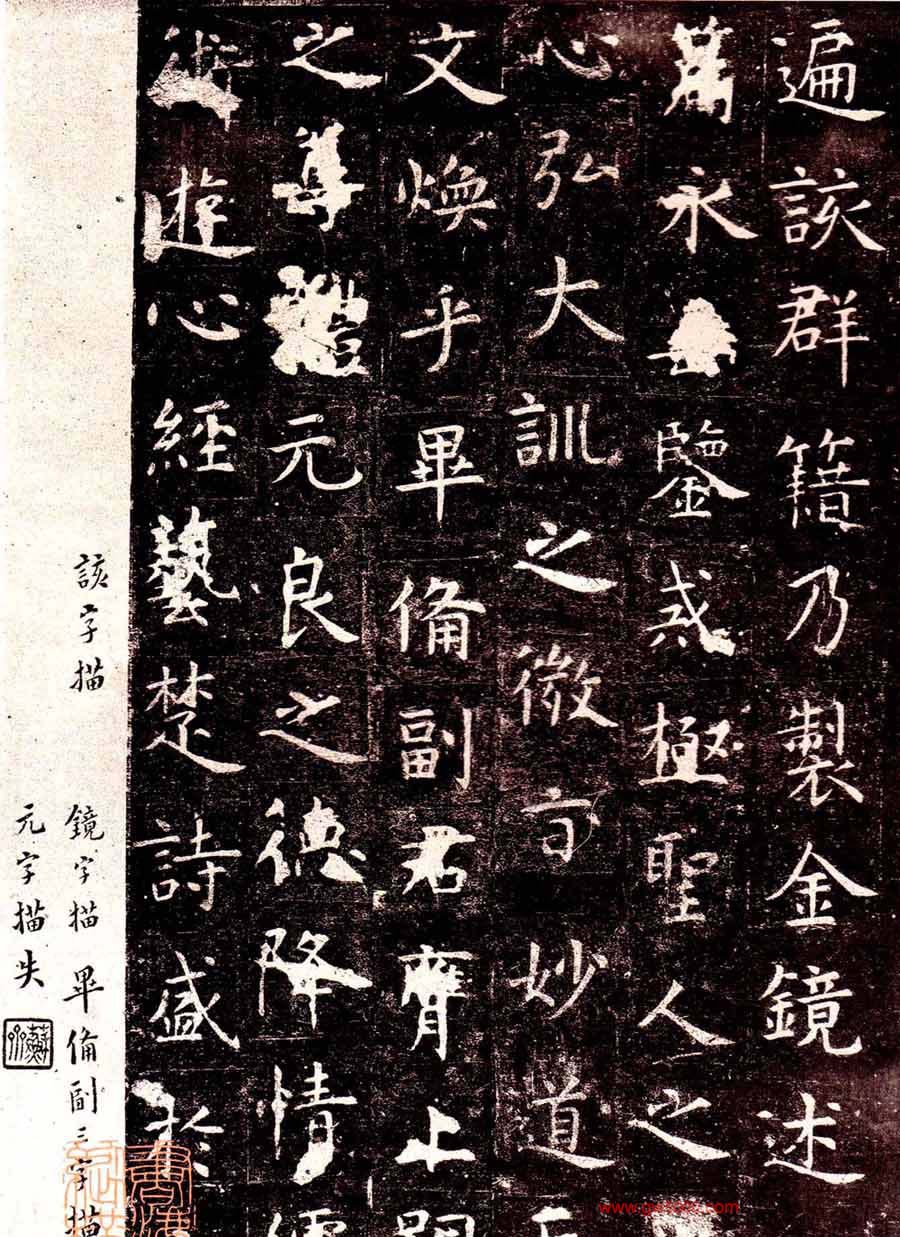 遍該群籍乃製金鏡述
篇永鑒戒極聖人之
心弘大訓之微旨妙道
文煥乎畢備副君膺上嗣
之尊體元良之德降情儒
術遊心經藝楚詩盛於
該字描
鏡字描 畢備副三字描
元字描失